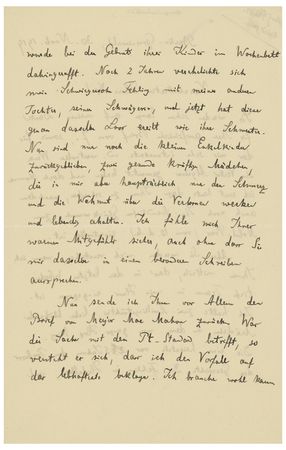 wurde bei der Geburt ihres Kindes im Wochenbett
dahingerafft. Nach 2 Jahren verehelichte sich
mein Schwiegersohn Fehling mit meiner andern
Tochter, seiner Schwägerin, und jetzt hat diese
genau dasselbe Loos ereilt wie ihre Schwester.
Nun sind nur noch die kleinen Enkelkinder
zurückgeblieben, zwei gesunde kräftige Mädchen,
die in mir aber hauptsächlich nur den Schmerz
und die Wehmut über die Verlornen wecken
und lebendig erhalten. Ich fühle mich Ihrer
warmen Mitgefühls sicher, auch ohne dass Sie
mir dasselbe in einem besonderen Schreiben
aussprechen.
Nun sende ich Ihnen vor Allem den
Brief von Major Mac Mahon zurück. Was
die Sache mit den Pt. Standard betrifft, so
versteht es sich, dass ich den Vorfall auf
das lebhafteste beklage. Ich brauche wohl kaum